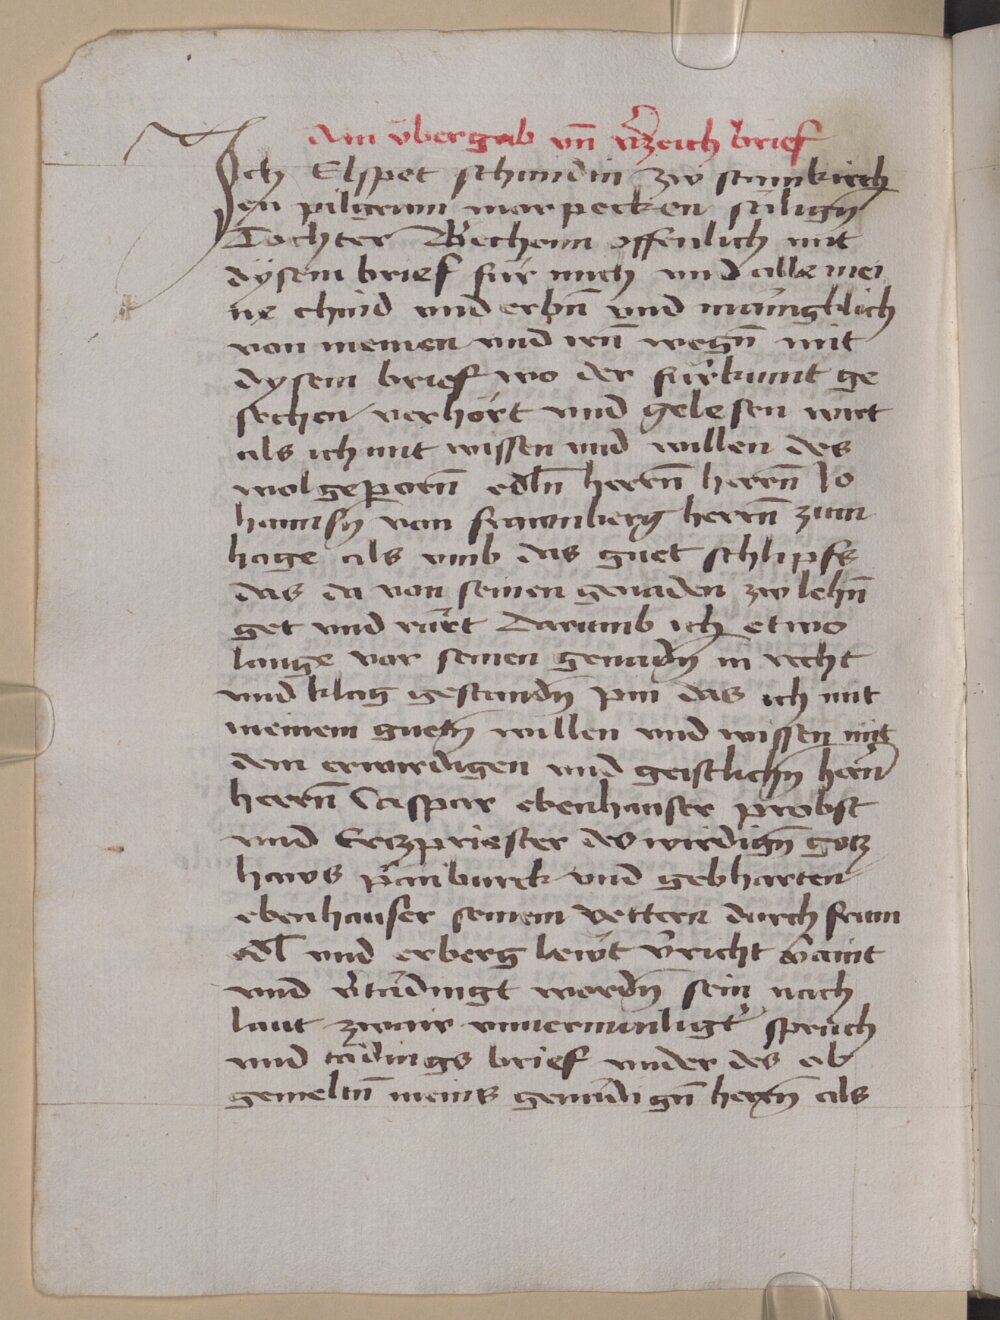 Ain übergab vn̄ v̾zeich brief
Ich Elspet schmidin zw stainkirch
en pilgrim marpecken säligñ
Tochter Bechenn offenlich mit
dÿsem brief für mich vnd alle mei
ne chind vnd erbn̄ vnd mänigklich
von meinen vnd irn̄ wegn̄ mit
dysem brief wo der fürkumt ge
sechen verhört vnd gelesen wirt
als ich mit wissen vnd willen des
wolgeporn̄ edln̄ herrn̄ herrn̄ Jo
hannsn̄ von fraunberg herrn̄ zum
hage als vmb das guet schlipfs
das da von seinen genaden zw lehn̄
get vnd rürt Darumb ich etwo
lange vor seinen genadn̄ in recht
vnd klag gestandn̄ pin das ich mit
meinem guetn̄ willen vnd wissen mit
dem erwirdigen vnd geistlichn̄ hern̄
herrn̄ Caspar ebenhauser probst
vnd Ertzpriester des wirdign̄ gotz
haws pämburck vnd gebharten
ebenhauser seinem vettern durch frum
edl vnd erberg lewt v̾richt v̾aint
vnd v̾tädingt wordn̄ sein nach
laut zwair vnuermailigt̾ spruch
vnd tädings brief vnder des ob
gemeltn̄ meins genädign̄ herrn̄ als